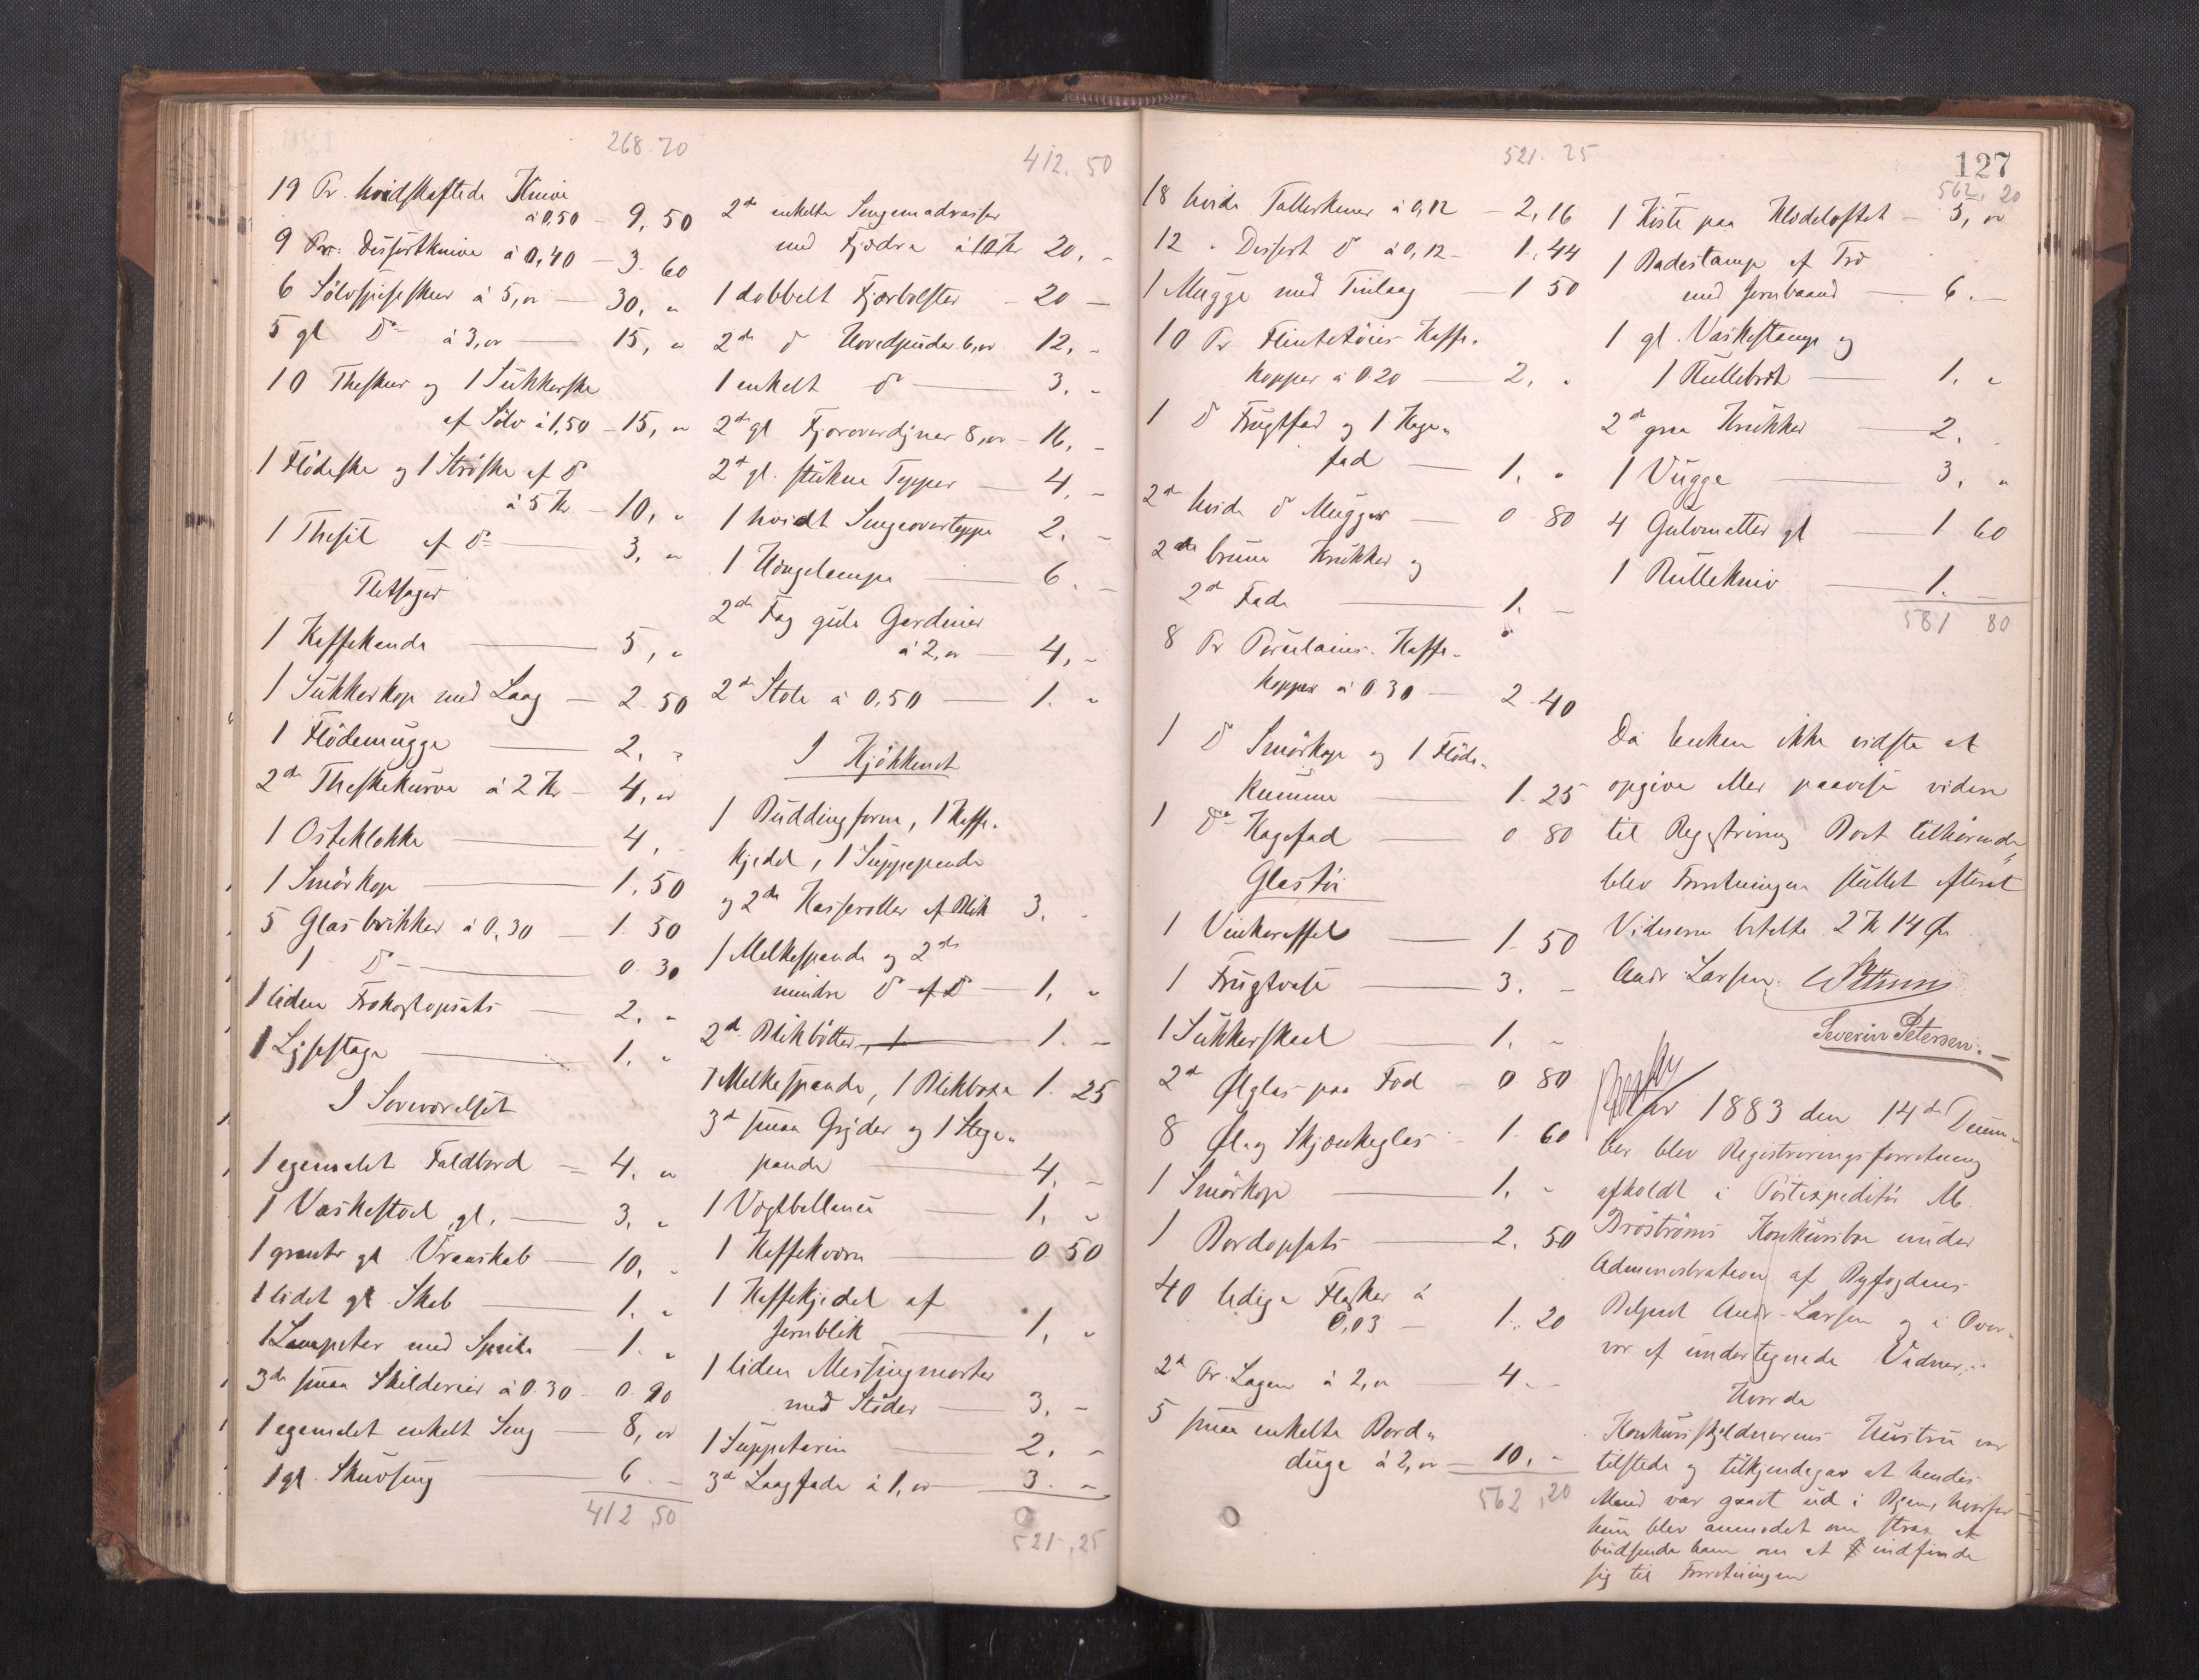 268.70
19 Pr. hvidskaftede Knive
à 0,50 - 9,50
9 Par Dessertknive à 0,40 - 3.60
6 Sölvspiseskeer à 5,00 - 30, "
5 gl Do à 3,00 - 15, "
10 Theskeer og 1 Sukkerske
af Sölv à 1,50 - 15, "
1 Flödeske og 1 Ströske af Do
à 5 Kr - 10, "
1 Thesil af Do - 3, "
Pletsager
1 Kaffekande - 5, "
1 Sukkerkop med Laag - 2.50
1 Flödemugge - 2, "
2de Theskekurve à 2 Kr - 4, "
1 Osteklokke - 4, "
1 Smörkop - 1,50
5 Glasbrikker à 0,30 - 1.50
1 Do - 0.30
1 liden Frokostopsats - 2. "
1 Lysestage - 1. "
I Soveværelset
1 egemalet Faldbord - 4. "
1 Vaskestoel gl. - 3, "
1 grønt gl Vraaskab - 10, "
1 lidet gl. Skab - 1. "
1 Lampeter med Speile - 1. "
3de smaa Skilderier à 0.30 - 0.90
1 egemalet enkelt Seng - 8, "
1 gl. Skuvseng - 6. -
412,50
412.50
2de enkelte Sengemadrasser
med Fjædre à 10 Kr 20, -
1 dobbelt Fjærbolster - 20 -
2de Do Hovedpuder 6,00 12, -
1 enkelt Do - 3. "
2de gl Fjæroverdyner 8,00 - 16, -
2de gl. stukne Tepper - 4. -
1 hvidt Sengeovertæppe 2. -
1 Hængelampe - 6. -
2de Fag gule Gardiner
à 2,00 - 4, -
2de Stole à 0,50 - 1. "
I Kjökkenet
1 Buddingform, 1 Kaffe-
kjedel, 1 Suppepande
og 2de Kasseroller af Blik 3. "
1 Melkespande og 2de
mindre Do af Do - 1, "
2de Blikbötter - 1. -
1 Melkespande, 1 Blikboxe 1.25
3de smaa Gryder og 1 Stege-
pande - 4. -
1 Vægtballance - 1, "
1 Kaffekværn - 0.50
1 Kaffekjedel af
Jernblik - 1, "
1 liden Messingmorter
med Stöder - 3. -
1 Suppeterin - 2. -
3de Laagfade à 1,00 - 3. -
521,25
521.25
18 hvide Tallerkener à 0,12 - 2,16
12 " Dessert Do à 0,12 - 1.44
1 Mugge med Tinlaag - 1 50
10 Pr Flintetöies Kaffe-
kopper à 0.20 - 2. "
1 Do Frugtfad og 1 Kage-
fad - 1. "
2de hvide Do Mugger - 0.80
2de brune Krukker og
2de Fade - 1. -
8 Pr Porcelains Kaffe-
kopper à 0.30 - 2.40
1 Do Smörkop og 1 Flöde-
kumme - 1.25
1 Do Kagefad - 0.80
Glastöi
1 Vinkaraffel - 1.50
1 Frugtvase - 3. -
1 Sukkerskaal - 1. -
2de Ølglas paa Fod - 0 80
8 Øl og Skjænkeglas - 1.60
1 Smörkop - 1. -
1 Bordopsats - 2.50
40 ledige Flasker à
0,03 - 1.20
2de Pr. Lagen à 2,00 - 4 - -
5 smaa enkelte Bord-
duge à 2,00 - 10. -
562,20
127
562.20
1 Kiste paa Klædeloftet - 3, 00
1 Badestamp af Træ
med Jernbaand - 6. -
1 gl. Vaskestamp og
1 Rullebræt - 1. "
2de graa Krukker - 2. -
1 Vugge - 3, "
4 Gulvmatter gl - 1 60
1 Rullekniv - 1. -
581 80
Da Enken ikke vidste at
opgive eller paavise videre
til Registrering Boet tilhörende,
blev Forretningen sluttet efterat
Vidnerne betalte 2 Kr 14 Øre
Andr Larsen.
Severin Petersen.
Aar 1883 den 14de Decem-
ber blev Registreringsforretning
afholdt i Postexpeditör M.
Broströms Konkursbo under
Administration af Byfogdens
Betjent Andr. Larsen og i Over-
vær af undertegnede Vidner,
Hvorda
Konkursskyldnerens Hustru var
tilstede og tilkjendegav at hendes
Mand var gaaet ud i Byen, hvorfor
hun blev anmodet om strax at
budsende ham om at indfinde
sig til Forretningen